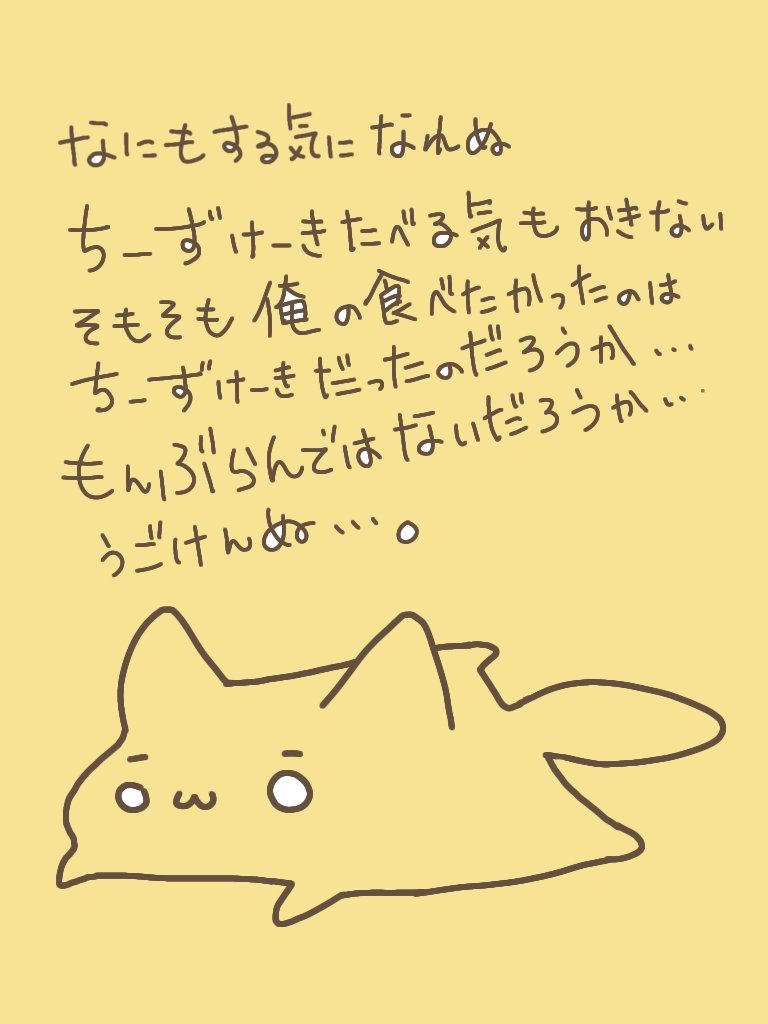 なにもする気になれぬ
ちーずけーきたべる気もおきない
そもそも俺の食べたかったのは
ちーずけーきだったのだろうか…
もんぶらんではないだろうか…
うごけんぬ…。